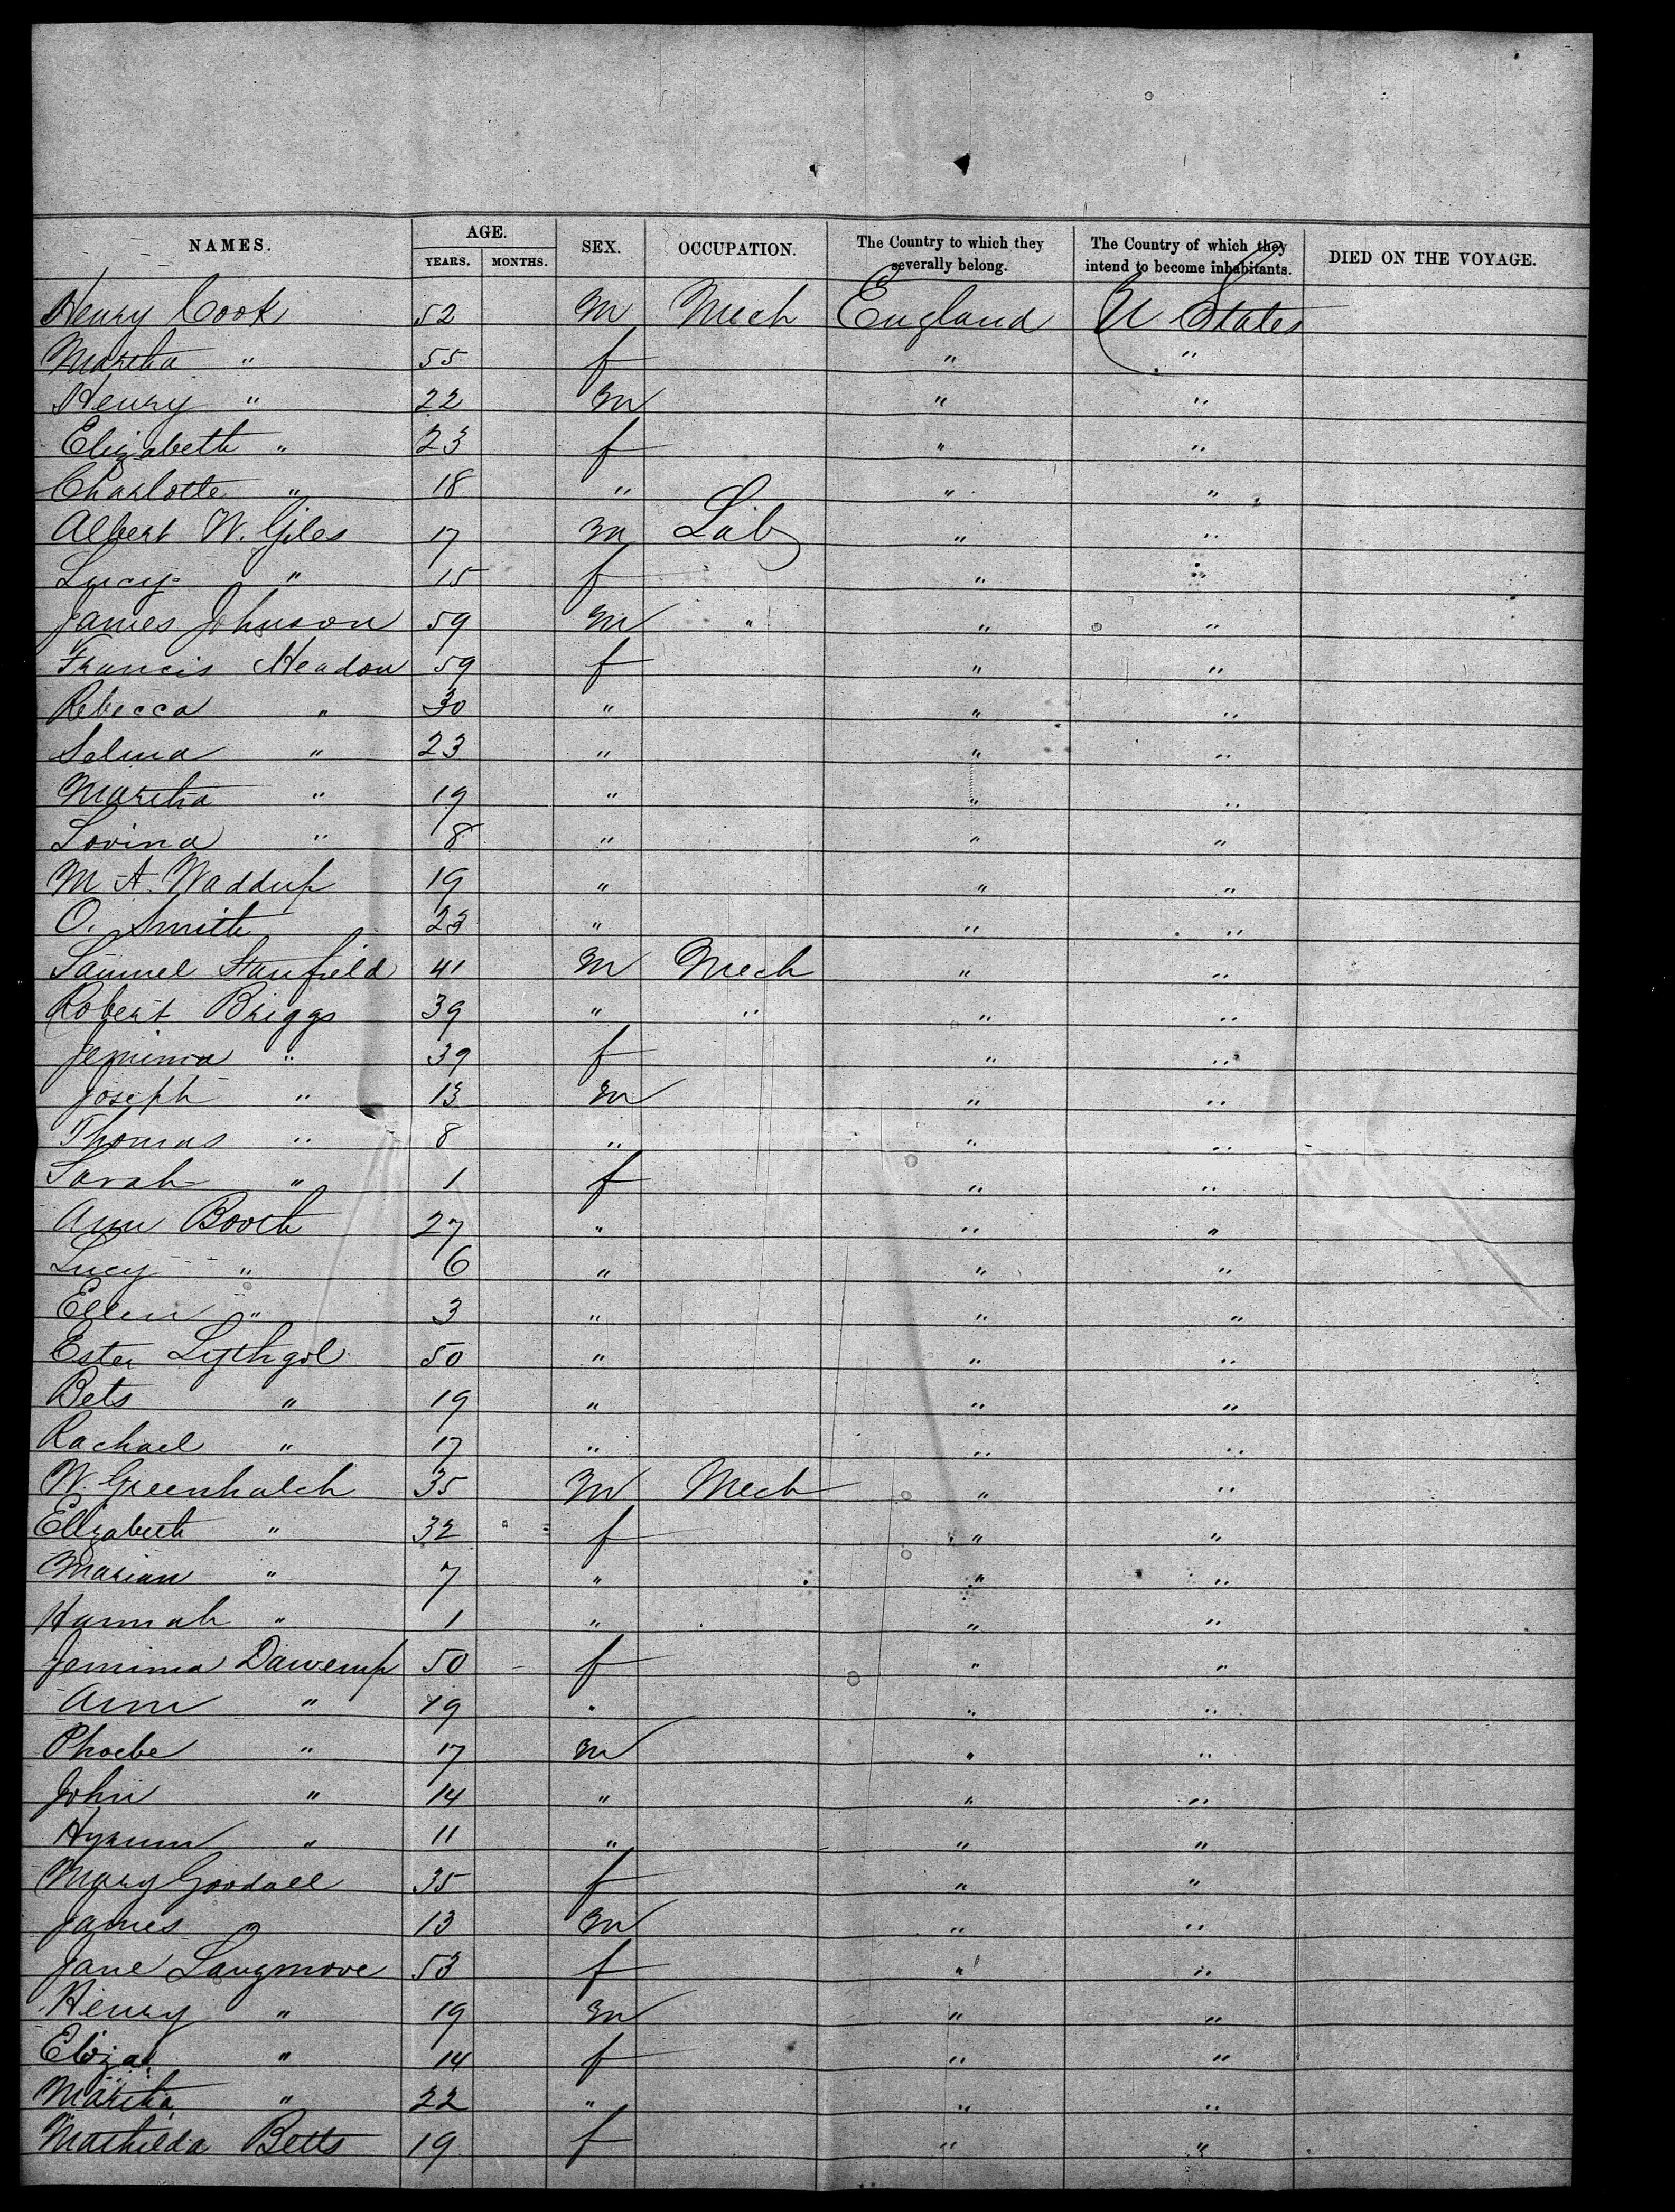 NAMES. AGE. SEX. OCCUPATION. The Country to which they severally belong. The Country of which they intend to become inhabitants. DIED ON THE VOYAGE.
YEARS. MONTHS.
Henry Cook 52 m Mech England U States
Martha " 55 f " "
Henry " 22 m " "
Elizabeth " 23 f " "
Charlotte " 18 " " "
Albert W. Giles 17 m Lab " "
Lucy " 15 f " "
James Johnson 59 m " " "
Francis Meadow 59 f " "
Rebecca " 30 " " "
Selina " 23 " " "
Martha " 19 " " "
Lovina " 8 " " "
M A Waddup 19 " " "
O. Smith 23 " " "
Samuel Stanfield 41 m Mech " "
Robert Briggs 39 " " " "
Jemima " 39 f " "
Joseph " 13 m " "
Thomas " 8 " " "
Sarah " 1 f " "
Ann Booth 27 " " "
Lucy " 6 " " "
Ellen " 3 " " "
Ester Lythgol 50 " " "
Bets " 19 " " "
Rachael " 17 " " "
W. Greenhalch 35 m Mech " "
Elizabeth " 32 f " "
Marian " 7 " " "
Hannah " 1 " " "
Jemima 50 f " "
Ann " 19 " " "
Phoebe " 17 m " "
John " 14 " " "
Hyrum " 11 " " "
Mary Goodall 35 f " "
James 13 m " "
Jane Langmore 53 f " "
Henry " 19 m " "
Eliza " 14 f " "
Martha " 22 " " "
Mathilda Betts 19 f " "